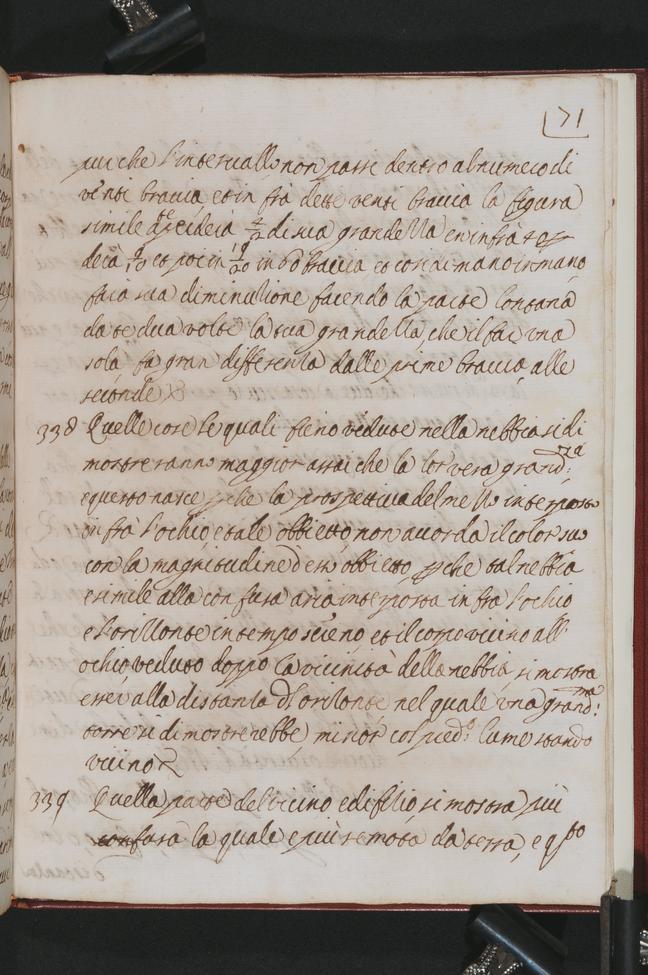 171
più che l'interuallo non passi dentro al numero di
venti braccia et in frà dette venti braccia la figura
simile perderà 2/4 di sua grandezza e in frà 40 per
derà 9/10 et poi 19/20 in 60 braccia et così di mano in mano
farà sua diminutione facendo la parte lontana
da te dua volte la tua grandezza, che il far una
sola fa gran differentia dalle prime braccia alle
seconde
338 Quelle cose le quali fieno vedute nella nebbia si di
mostreranno maggior assai che la lor vera grandza:
e questo nasce perche la prospettiua del mezzo interposto
infrà l'ochio e tale obbietto non accorda il color suo
con la magnitudine d'esso obbietto, perche tal nebbia
e simile alla confusa aria interposta infra l'ochio
e l'orizzonte in tempo sereno, et il corpo vicino all'
ochio veduto doppo la vicinità della nebbia, si mostra
esser alla distantia dell'orizonte nel quale una grandma:
torre si dimosterebbe minor col pred.o l'uomo stando
vicino
339 Quella parte del vicino edifitio si mostra più
confusa la quale e più remota da terra, e q.sto